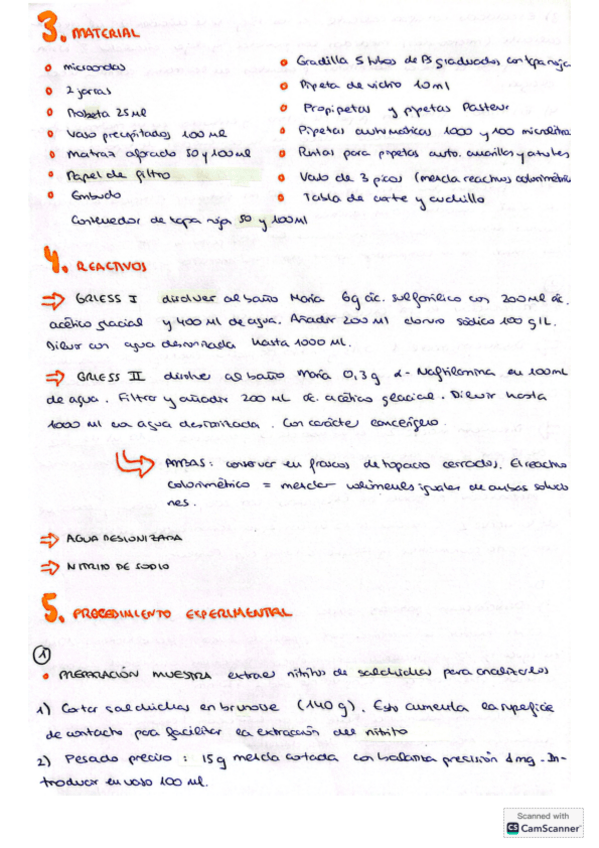 3. MATERIAL
• microondas
• 2 jarras
• Probeta 25 ml
• Vaso precipitados 100 ml
• Matraz aforado 50 y 100 ml
• Papel de filtro
• Embudo
Contenedor de tapa roja 50 y 100 ml
• Gradilla 5 tubos de PS graduados con tapa roja
• Pipeta de vidrio 10 ml
• Propipetas y pipetas Pasteur
• Pipetas automáticas 1000 y 100 microlitra
• Puntas para pipetas auto. amarillas y azules
• Vaso de 3 picos (mezcla reactivo colorimétric
• Tabla de corte y cuchillo
4. REACTIVOS
⇒ GRIESS I disolver al baño María 6g ác. sulfanílico con 200 ml ác.
acético glacial y 400 ml de agua. Añadir 200 ml cloruro sódico 100 g/L.
Diluir con agua desionizada hasta 1000 ml.
⇒ GRIESS II disolver al baño maría 0,3 g α - Naftilamina en 100 ml
de agua. Filtro y añadir 200 ml ác. acético glacial. Diluir hasta
1000 ml con agua desionizada. Con carácter cancerígeno.
AMBAS: conservar en frascos de topacio cerrados. El reactivo
colorimétrico = mezclar volúmenes iguales de ambas solucio
nes.
⇒ AGUA DESIONIZADA
⇒ NITRITO DE SODIO
5. PROCEDIMIENTO EXPERIMENTAL
1
• PREPARACIÓN MUESTRA extraer nitritos de salchichas para analizarlos
1) Cortar salchichas en brunoise (140 g). Esto aumenta la superficie
de contacto para facilitar la extracción del nitrito
2) Pesado preciso: 15 g mezcla cortada con balanza precisión 1 mg. In-
troducir en vaso 100 ml.
Scanned with
CS CamScanner